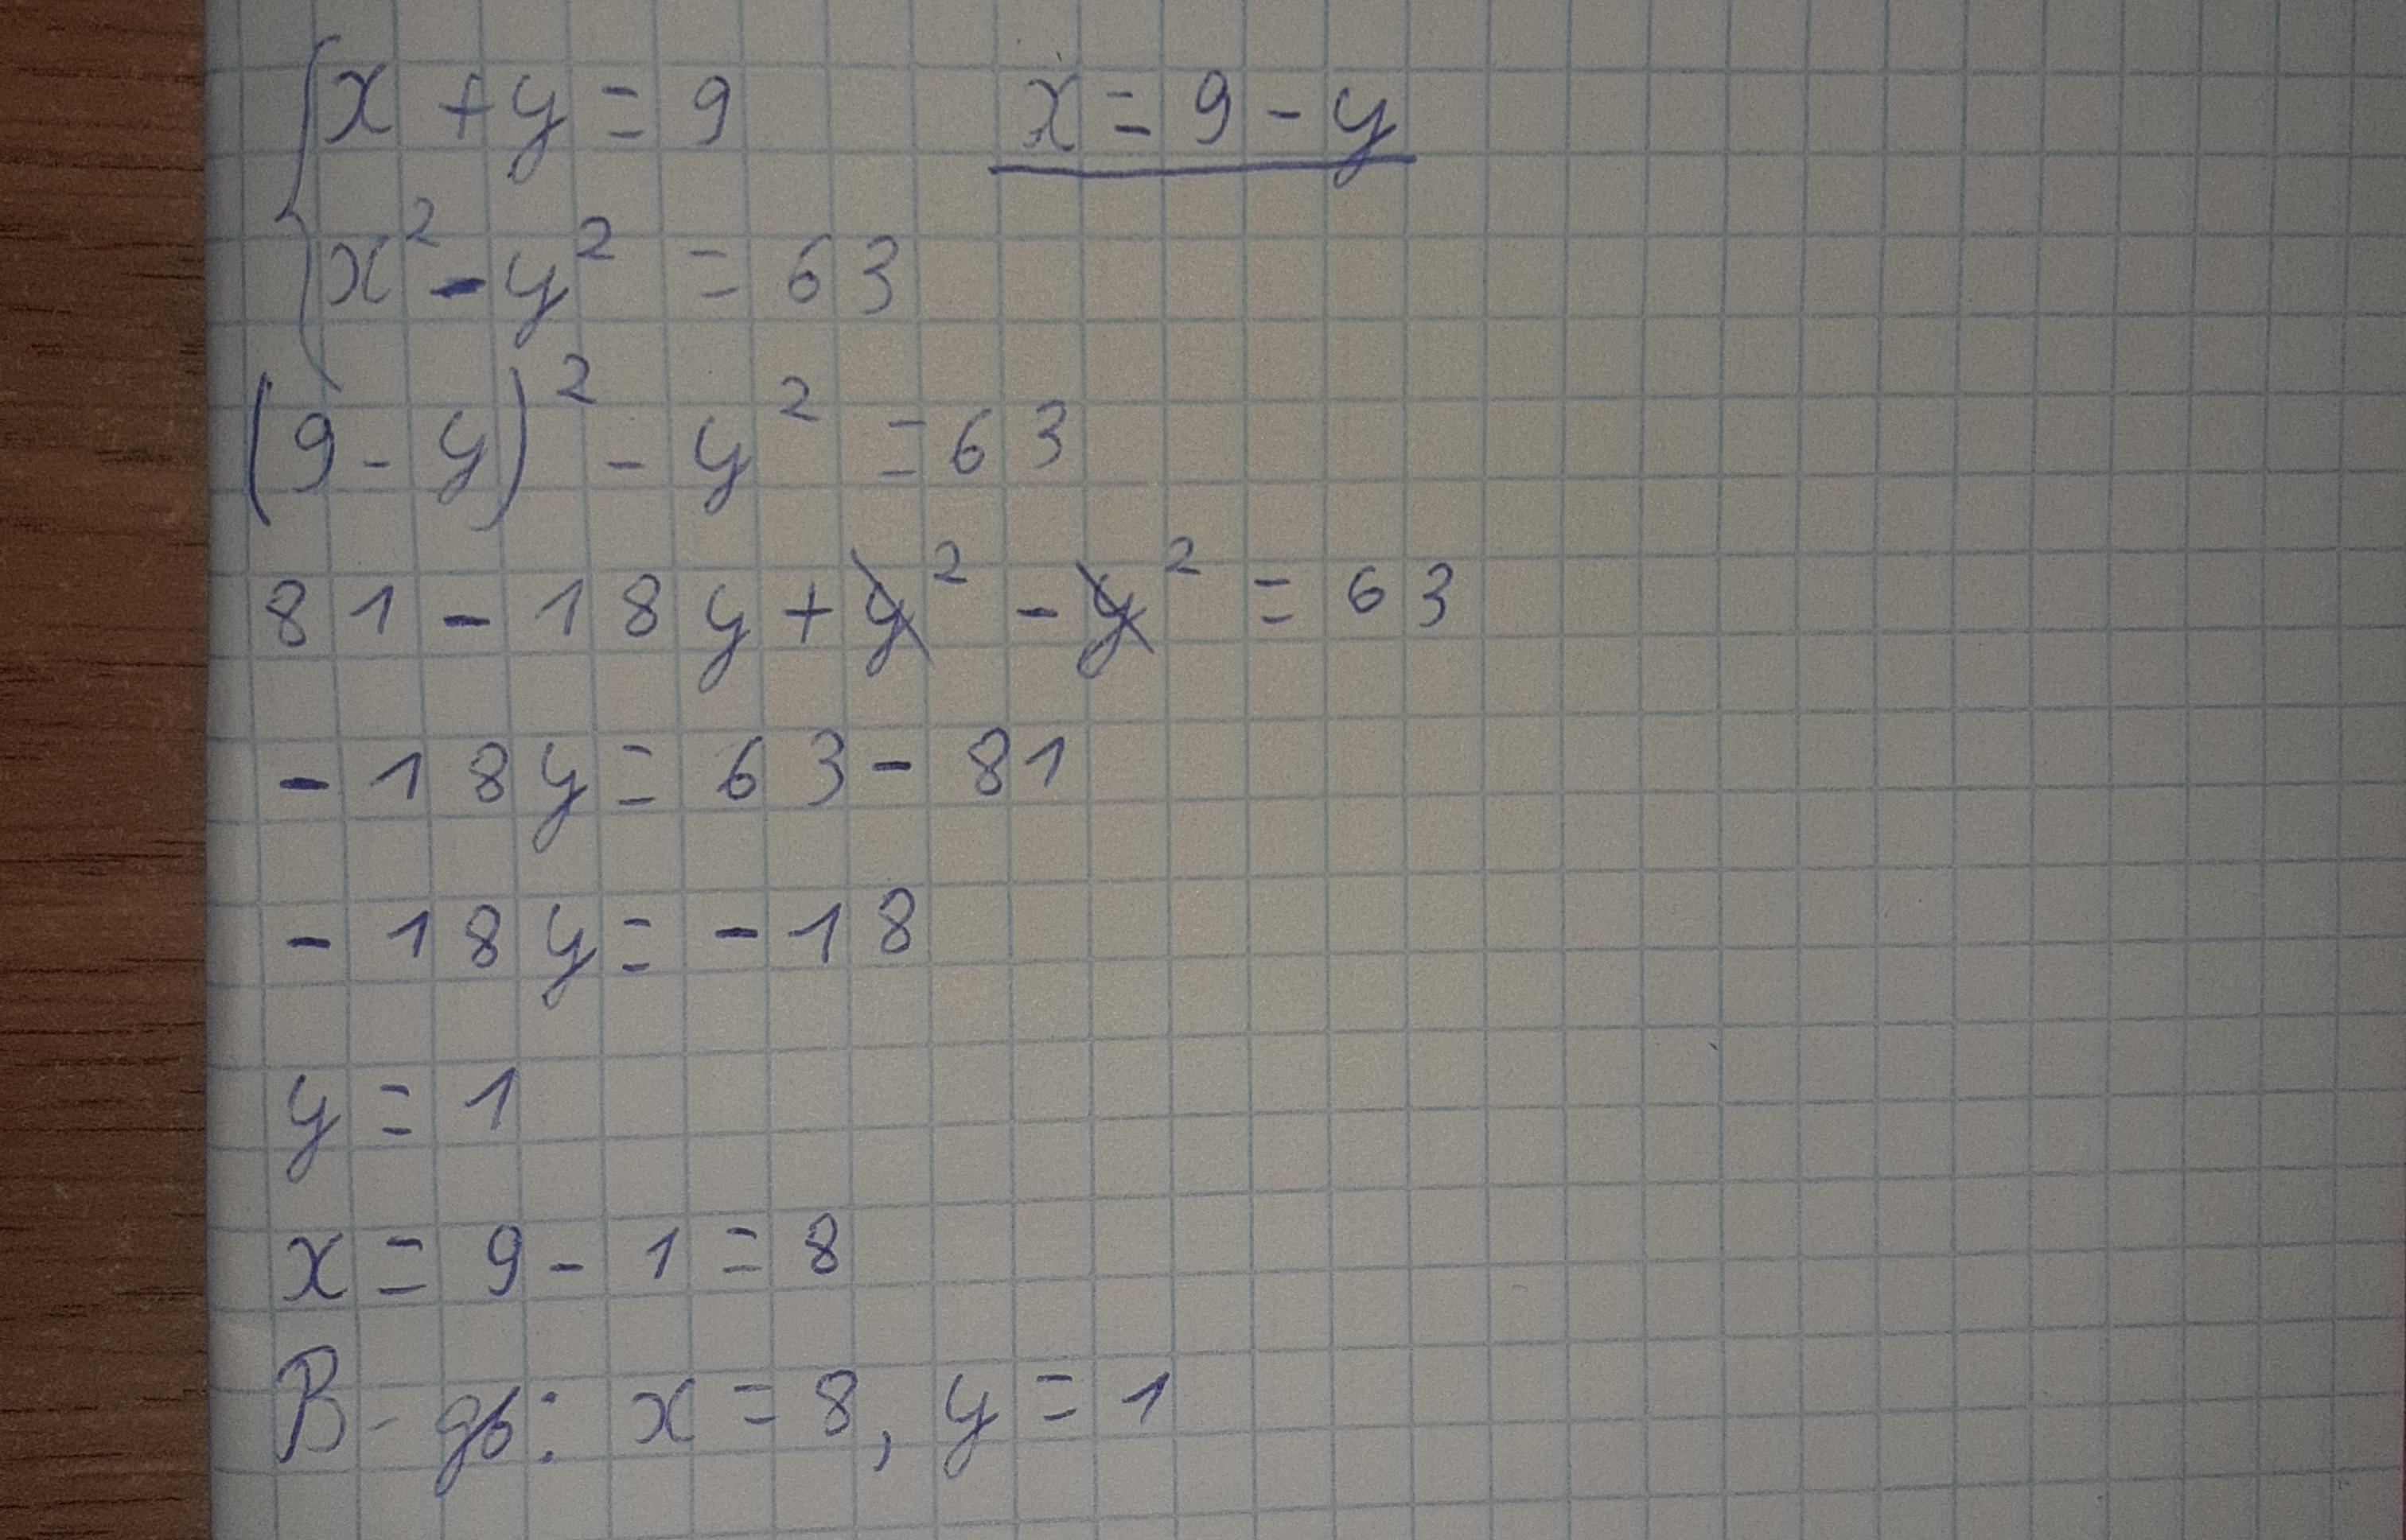 x + y = 9 x = 9 - y
x² - y² = 63
(9 - y)² - y² = 63
81 - 18y + y² - y² = 63
- 18y = 63 - 81
- 18y = - 18
y = 1
x = 9 - 1 = 8
В-дь: x = 8, y = 1